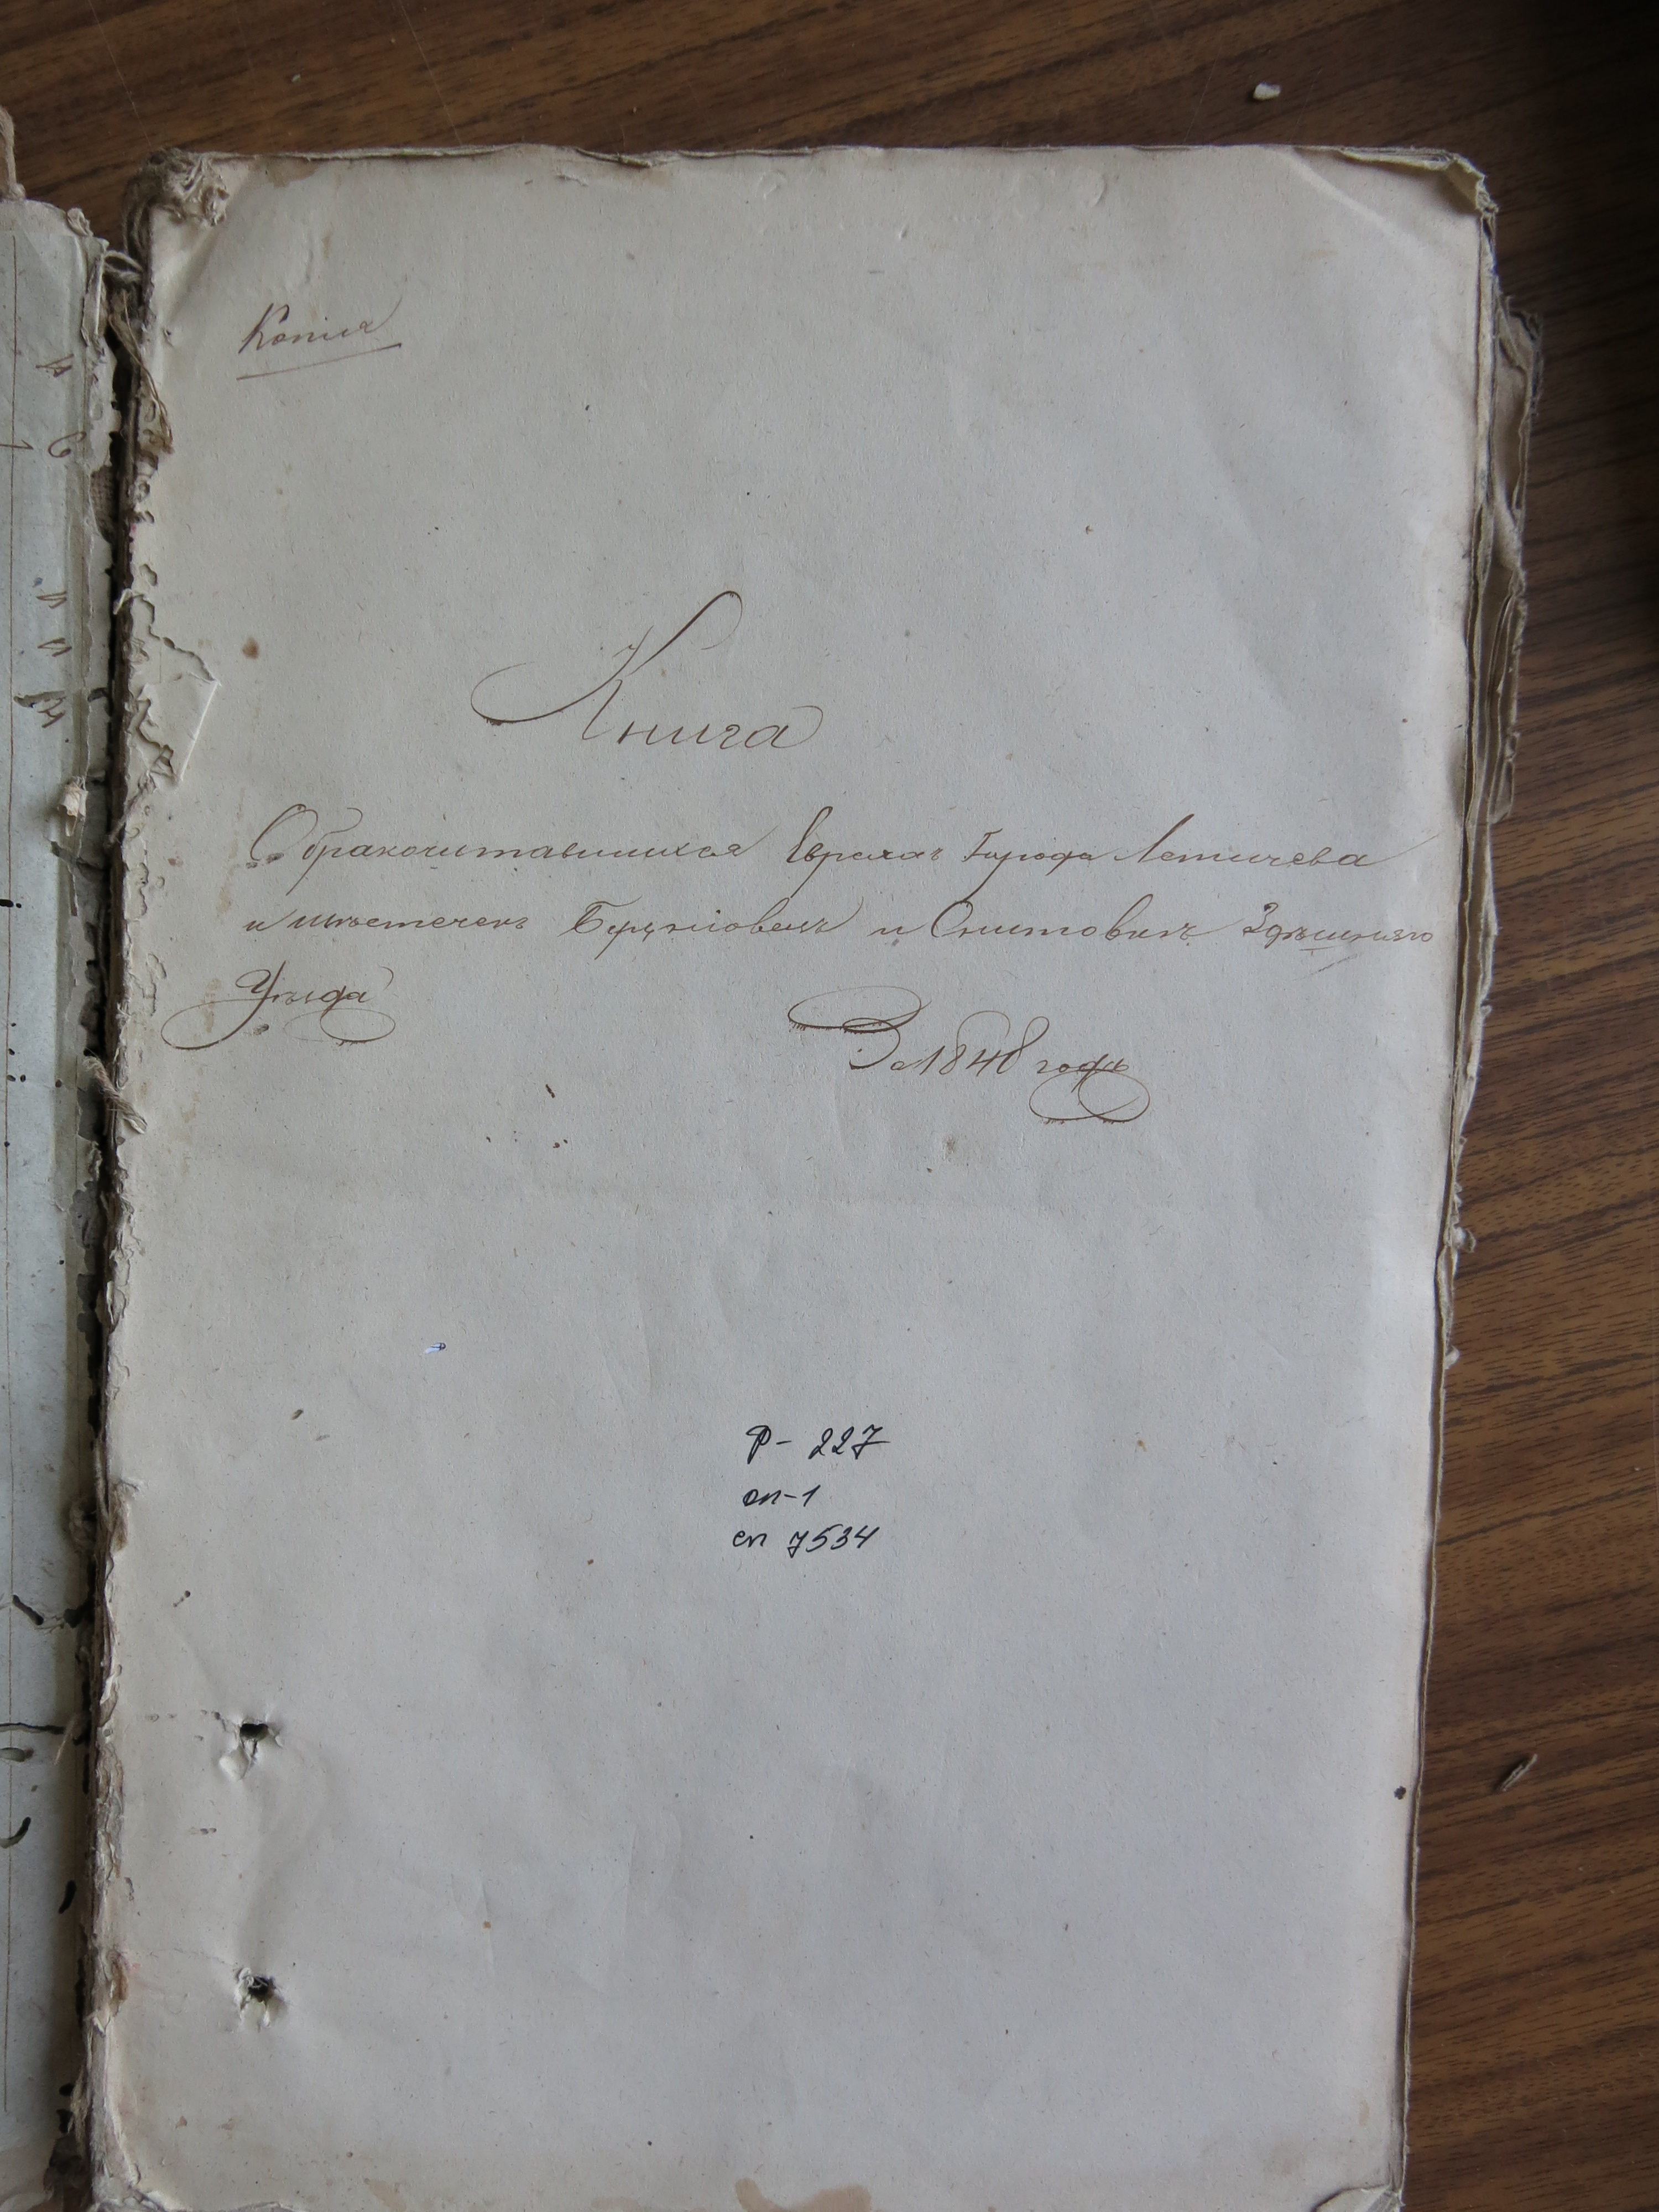 Копія
Книга
О бракочитавшихся Евреяхъ города Летичева
и мѣстечекъ Буцніовецъ и Снитовки Здѣшняго
Уѣзда
За 1848 годъ
Р- 227
оп-1
сп 7534